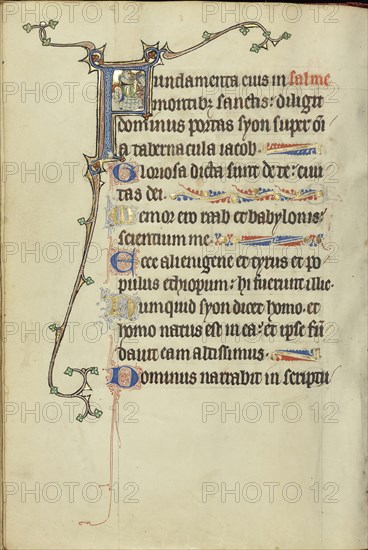 Fundamenta eius in salme
montib; sanctis: diligit
dominus portas syon super om̄
a tabernacula iacob.
Gloriosa dicta sunt de te: ciui
tas dei.
Memor ero raab et babylonis:
scientium me.
Ecce alienigene et tyrus et po
pulus ethiopum: hi fuerunt illic.
Numquid syon dicet homo. et
homo natus est in ea: et ipse fun̄
dauit eam altissimus.
Dominus narrabit in scriptu